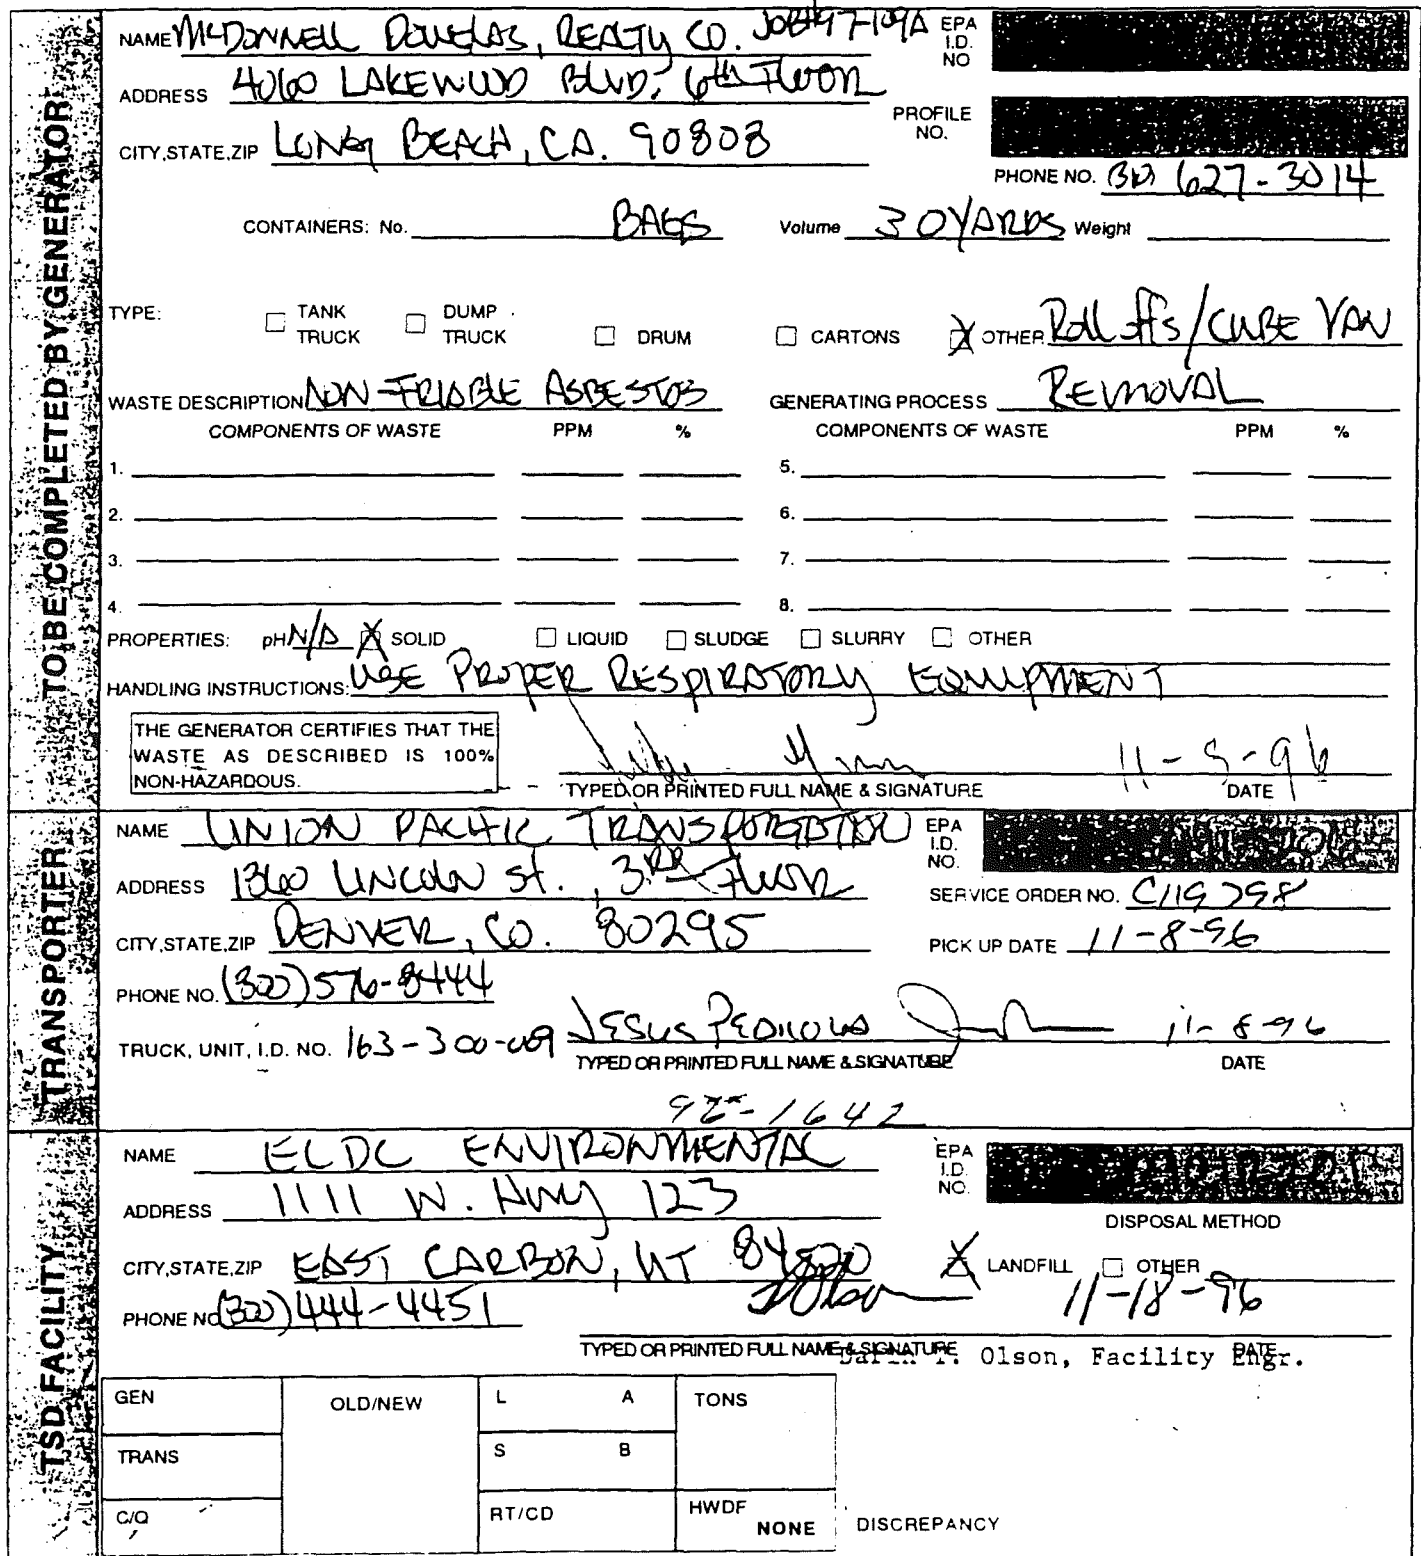 TO BE COMPLETED BY GENERATOR
NAME McDONNELL DOUGLAS, REALTY CO. JOB#97-109A EPA I.D. NO
ADDRESS 4060 LAKEWOOD BLVD, 6th FLOOR
PROFILE NO.
CITY,STATE,ZIP LONG BEACH, CA. 90808
PHONE NO. 627-3014
CONTAINERS: No. BAGS Volume 30 YARDS Weight
TYPE: TANK TRUCK DUMP TRUCK DRUM CARTONS X OTHER Roll offs/CUBE VAN
WASTE DESCRIPTION NON-FRIABLE ASBESTOS GENERATING PROCESS REMOVAL
COMPONENTS OF WASTE PPM % COMPONENTS OF WASTE PPM %
1. 5.
2. 6.
3. 7.
4. 8.
PROPERTIES: pH N/A X SOLID LIQUID SLUDGE SLURRY OTHER
HANDLING INSTRUCTIONS: USE PROPER RESPIRATORY EQUIPMENT
THE GENERATOR CERTIFIES THAT THE
WASTE AS DESCRIBED IS 100%
NON-HAZARDOUS.
11-5-96
TYPED OR PRINTED FULL NAME & SIGNATURE DATE
TRANSPORTER
NAME UNION PACIFIC TRANSPORTATION EPA I.D. NO.
ADDRESS 1360 LINCOLN St., 3RD FLOOR
SERVICE ORDER NO.
CITY,STATE,ZIP DENVER, CO. 80295 PICK UP DATE 11-8-96
PHONE NO. (800) 576-8444
TRUCK, UNIT, I.D. NO. 163-300-009 JESUS 11-8-96
TYPED OR PRINTED FULL NAME & SIGNATURE DATE
TSD FACILITY
NAME ECDC ENVIRONMENTAL EPA I.D. NO.
ADDRESS 1111 W. Hwy 123
DISPOSAL METHOD
CITY,STATE,ZIP EAST CARBON, UT 84520 X LANDFILL OTHER
PHONE NO (800) 444-4451 11-18-96
TYPED OR PRINTED FULL NAME & SIGNATURE DATE
Darin T. Olson, Facility Engr.
GEN OLD/NEW L A TONS
TRANS S B
C/Q RT/CD HWDF NONE DISCREPANCY